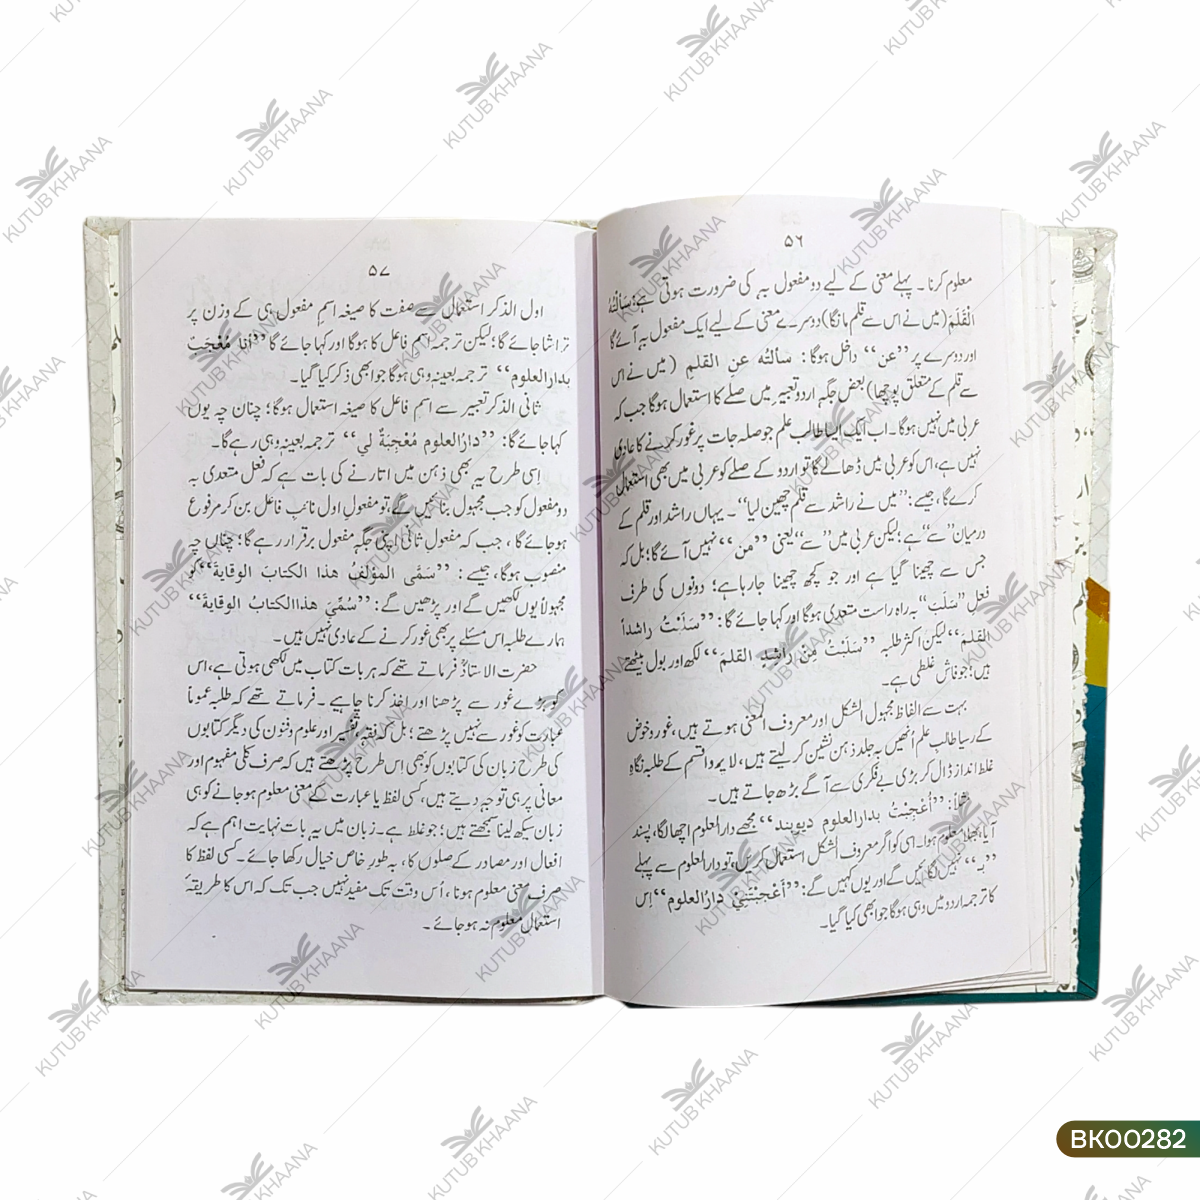 ۵۶
معلوم کرنا۔ پہلے معنی کے لیے دو مفعول بہ کی ضرورت ہوتی ہے: سَأَلْتُهُ
القَلَمَ (میں نے اس سے قلم مانگا) دوسرے معنی کے لیے ایک مفعول بہ آئے گا
اور دوسرے پر ”عن“ داخل ہوگا: سَألتُه عنِ القلمِ (میں نے اس
سے قلم کے متعلق پوچھا) بعض جگہ اردو تعبیر میں صلے کا استعمال ہوگا جب کہ
عربی میں نہیں ہوگا۔ اب ایک ایسا طالب علم جو صلہ جات پر غور کرنے کا عادی
نہیں ہے، اس کو عربی میں ڈھالے گا تو اردو کے صلے کو عربی میں بھی استعمال
کرے گا، جیسے: ”میں نے راشد سے قلم چھین لیا“۔ یہاں راشد اور قلم کے
درمیان ”سے“ ہے؛ لیکن عربی میں ”سے“ یعنی ”من“ نہیں آئے گا؛ بل کہ
جس سے چھینا گیا ہے اور جو کچھ چھینا جارہا ہے؛ دونوں کی طرف
فعل ”سَلَبَ“ بہ راہ راست متعدی ہوگا اور کہا جائے گا: ”سَلَبْتُ راشداً
القلمَ“ لیکن اکثر طلبہ ”سَلَبْتُ مِنْ رَاشِدٍ القلمَ“ لکھ اور بول بیٹھتے
ہیں؛ جو فاش غلطی ہے۔
بہت سے الفاظ مجہول الشکل اور معروف المعنی ہوتے ہیں، غور و خوض
کے رسیا طالب علم اُنھیں بہ جلد ذہن نشین کر لیتے ہیں، لا پروا قسم کے طلبہ نگاہِ
غلط انداز ڈال کر بڑی بے فکری سے آگے بڑھ جاتے ہیں۔
مثلاً: ”أُعْجِبْتُ بدارالعلوم دیوبند“ مجھے دارالعلوم اچھا لگا، پسند
آیا، بھلا معلوم ہوا۔ اسی کو اگر معروف الشکل استعمال کریں، تو دارالعلوم سے پہلے
”بِـ“ نہیں لگائیں گے اور یوں کہیں گے: ”أَعْجَبَتْنِيْ دارُالعلوم“ اِس
کا ترجمہ اردو میں وہی ہوگا جو ابھی کیا گیا۔
۵۷
اول الذکر استعمال سے صفت کا صیغہ اسمِ مفعول ہی کے وزن پر
تراشا جائے گا؛ لیکن ترجمہ اسم فاعل کا ہوگا اور کہا جائے گا ”أنا مُعْجَبٌ
بدارالعلوم“ ترجمہ بعینہ وہی ہوگا جو ابھی ذکر کیا گیا۔
ثانی الذکر تعبیر سے اسمِ فاعل کا صیغہ استعمال ہوگا؛ چناں چہ یوں
کہا جائے گا: ”دارُالعلومِ مُعْجِبَةٌ لي“ ترجمہ بعینہ وہی رہے گا۔
اِسی طرح یہ بھی ذہن میں اتارنے کی بات ہے کہ فعل متعدی بہ
دو مفعول کو جب مجہول بنائیں گے، تو مفعولِ اول نائبِ فاعل بن کر مرفوع
ہوجائے گا، جب کہ مفعولِ ثانی اپنی جگہ مفعول برقرار رہے گا؛ چناں چہ
منصوب ہوگا، جیسے: ”سَمَّى المؤلِّفُ هذا الكتابَ الوقايةَ“ کو
مجہولاً یوں لکھیں گے اور پڑھیں گے: ”سُمِّيَ هذاالكتابُ الوقايةَ“
ہمارے طلبہ اس مسئلے پر بھی غور کرنے کے عادی نہیں ہیں۔
حضرت الاستاذؒ فرماتے تھے کہ ہر بات کتاب میں لکھی ہوتی ہے، اس
کو بڑے غور سے پڑھنا اور اخذ کرنا چاہیے۔ فرماتے تھے کہ طلبہ عموماً
عبارت کو غور سے نہیں پڑھتے؛ بل کہ فقہ، تفسیر اور علوم و فنون کی دیگر کتابوں
کی طرح زبان کی کتابوں کو بھی اِس طرح پڑھتے ہیں کہ صرف کلی مفہوم اور
معانی پر ہی توجہ دیتے ہیں، کسی لفظ یا عبارت کے معنی معلوم ہوجانے کو ہی
زبان سیکھ لینا سمجھتے ہیں؛ جو غلط ہے۔ زبان میں یہ بات نہایت اہم ہے کہ
افعال اور مصادر کے صلوں کا، بہ طورِ خاص خیال رکھا جائے۔ کسی لفظ کا
صرف معنی معلوم ہونا، اُس وقت تک مفید نہیں جب تک کہ اس کا طریقۂ
استعمال معلوم نہ ہوجائے۔
KUTUB KHAANA
BK00282